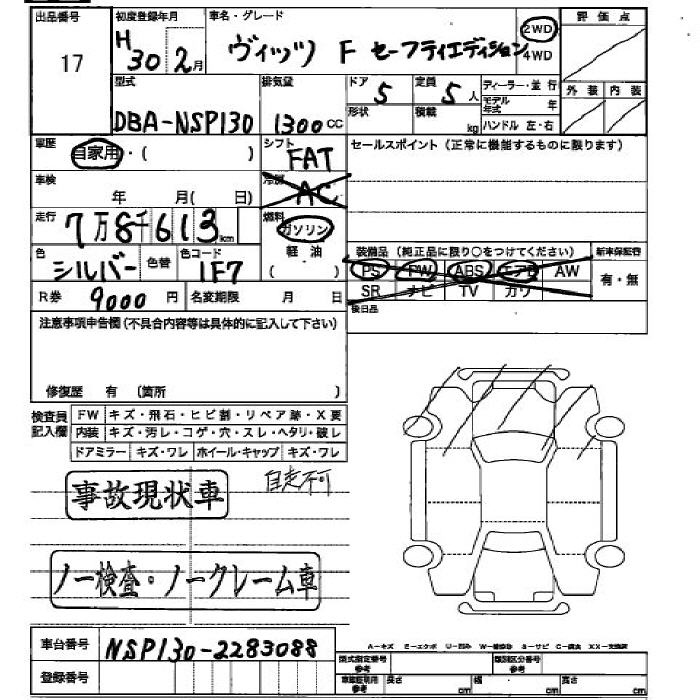 出品番号 初度登録年月 車名・グレード 評価点
17 H30 2月 ヴィッツ F セーフティエディション 2WD 4WD
型式 排気量 ドア 5 定員 5人 ディーラー・並行 外装 内装
DBA-NSP130 1300CC 形状 積載 kg モデル年式 年
ハンドル 左・右
車歴 自家用・( ) シフト FAT セールスポイント(正常に機能するものに限ります)
車検 年 月( 日) 冷房 AC
走行 7万8千613km 燃料 ガソリン
軽油
( )
色 シルバー 色替 色コード 1F7 装備品(純正品に限り○をつけてください) 新車保証書
PS PW ABS エアB AW 有・無
R券 9000円 名変期限 月 日 SR ナビ TV カワ
後日品
注意事項申告欄(不具合内容等は具体的に記入して下さい)
修復歴 有 (箇所 )
検査員記入欄 FW キズ・飛石・ヒビ割・リペア跡・X要
内装 キズ・汚レ・コゲ・穴・スレ・ヘタリ・破レ
ドアミラー キズ・ワレ ホイール・キャップ キズ・ワレ
事故現状車 自走不可
ノー検査・ノークレーム車
車台番号 NSP130-2283088
A-キズ E-エクボ U-凹み W-補修跡 S-サビ C-腐食 XX-交換済
登録番号 型式指定番号 参考 類別区分番号 参考
車庫証明用 参考 長さ cm 幅 cm 高さ cm